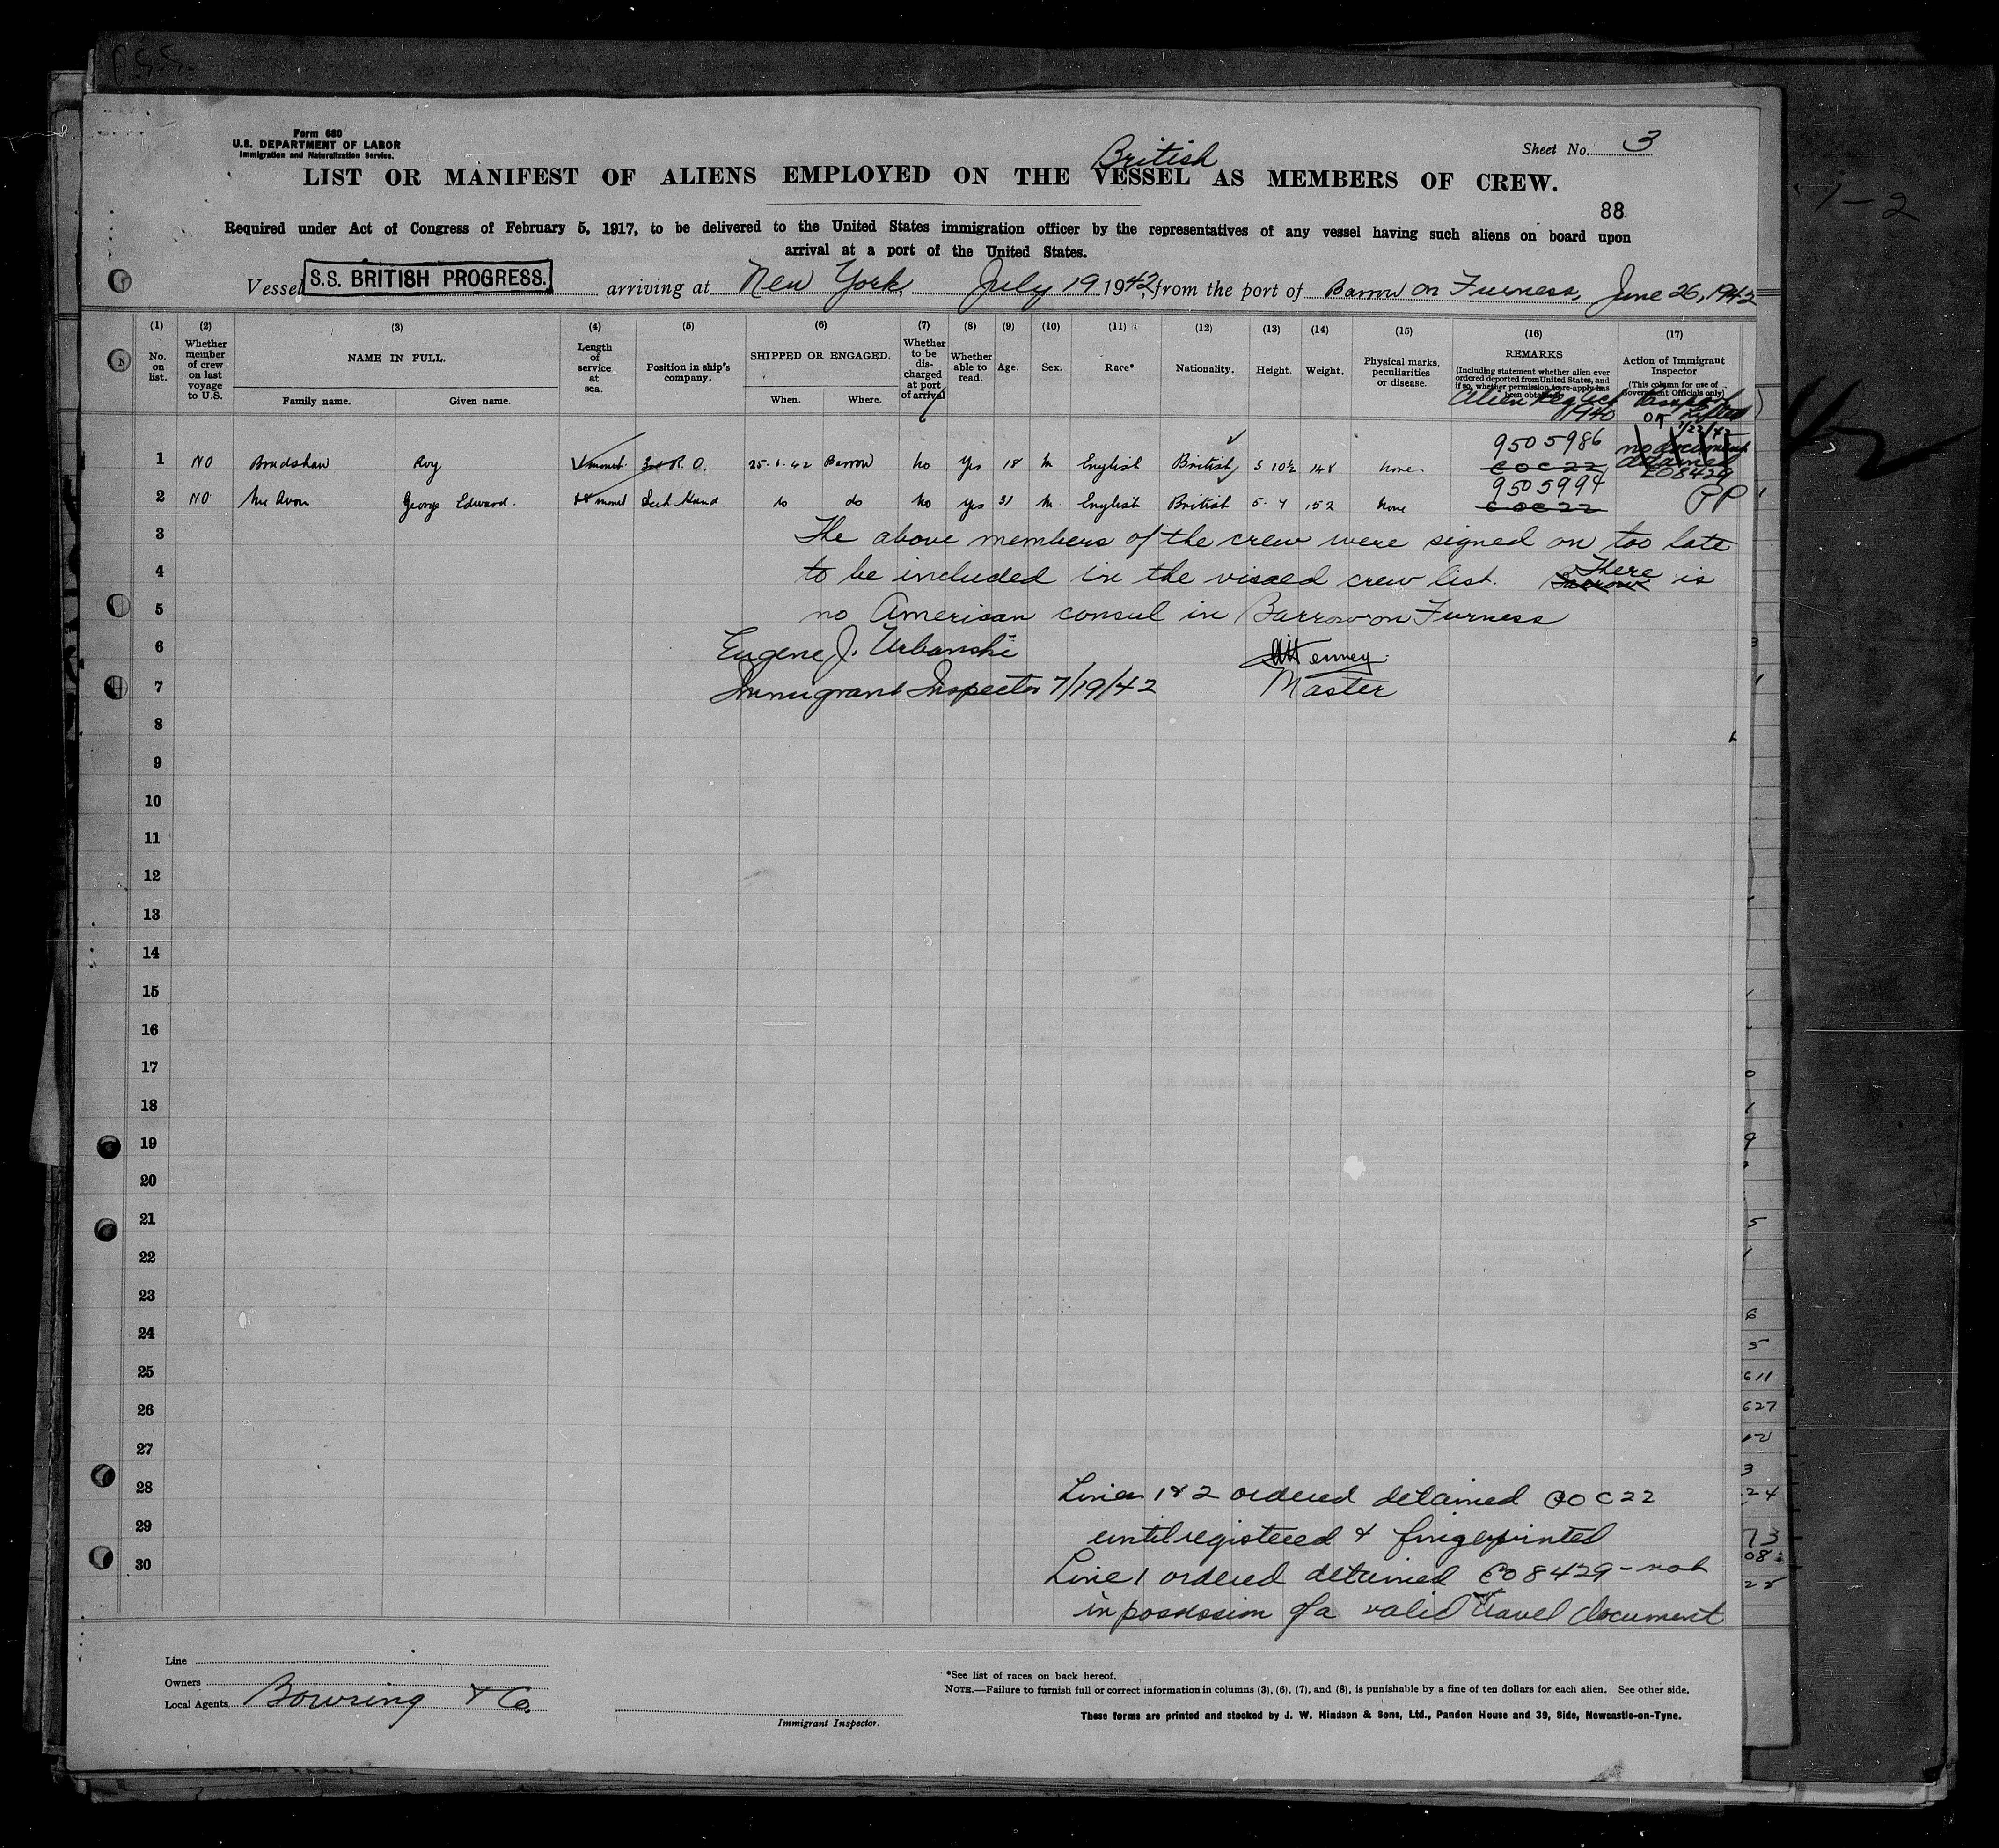 Form 680
U.S. DEPARTMENT OF LABOR
Immigration and Naturalization Service.
Sheet No. 3
British
LIST OR MANIFEST OF ALIENS EMPLOYED ON THE VESSEL AS MEMBERS OF CREW.
88
Required under Act of Congress of February 5, 1917, to be delivered to the United States immigration officer by the representatives of any vessel having such aliens on board upon
arrival at a port of the United States.
Vessel S.S. BRITISH PROGRESS. arriving at New York, July 19 1942, from the port of Barrow on Furness, June 26, 1942
(1) (2) (3) (4) (5) (6) (7) (8) (9) (10) (11) (12) (13) (14) (15) (16) (17)
No. on list.
Whether member of crew on last voyage to U.S.
NAME IN FULL.
Family name. Given name.
Length of service at sea.
Position in ship's company.
SHIPPED OR ENGAGED.
When. Where.
Whether to be discharged at port of arrival
Whether able to read.
Age.
Sex.
Race*
Nationality.
Height.
Weight.
Physical marks, peculiarities or disease.
REMARKS
(Including statement whether alien ever ordered deported from United States, and if so, whether permission to re-apply has been obtained)
Alien Reg Act 1940
Action of Immigrant Inspector
(This column for use of Government Officials only)
1 NO Bradshaw Roy R.O. 25.6.42 Barrow No Yes 18 M English British 5 10½ 148 None. 9505986 COC22 no document detained E08429
2 NO George Edward. Hand do do No yes 31 M. English British 5. 7 152 None 9505994 COC22 PP
3 The above members of the crew were signed on too late
4 to be included in the visaed crew list. There is
5 no American consul in Barrow on Furness
6 Eugene J. Urbanski
7 Immigrant Inspector 7/19/42 Master
8
9
10
11
12
13
14
15
16
17
18
19
20
21
22
23
24
25
26
27
28 Lines 1 & 2 ordered detained COC22
29 until registered & fingerprinted
30 Line 1 ordered detained E08429 - not
in possession of a valid travel document
Line
Owners
Local Agents Bowring & Co.
Immigrant Inspector.
*See list of races on back hereof.
NOTE.—Failure to furnish full or correct information in columns (3), (6), (7), and (8), is punishable by a fine of ten dollars for each alien. See other side.
These forms are printed and stocked by J. W. Hindson & Sons, Ltd., Pandon House and 39, Side, Newcastle-on-Tyne.